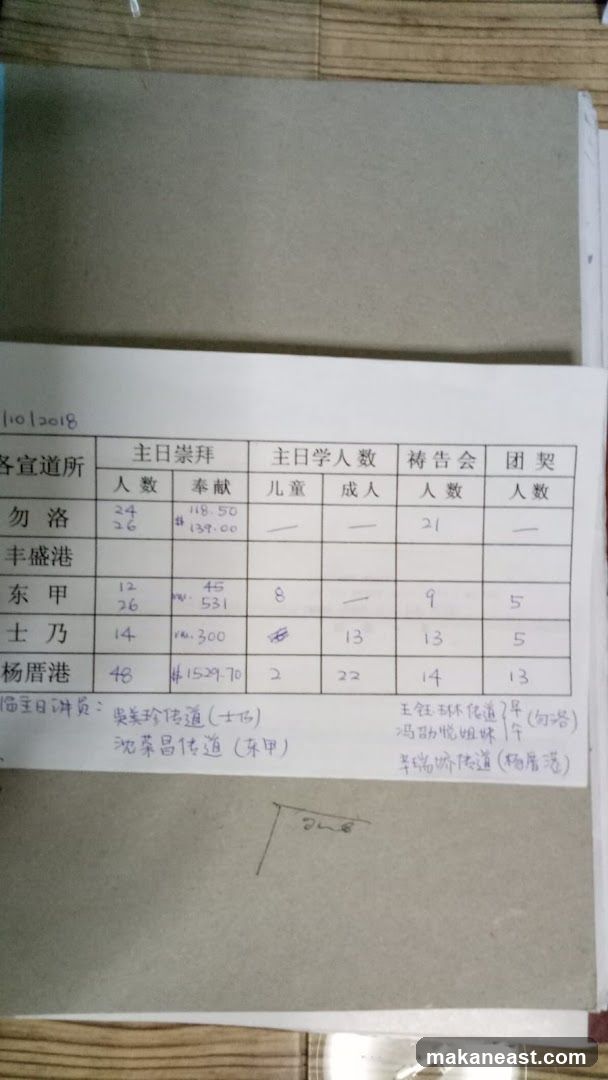 /10/2018
各宣道所 主日崇拜 主日学人数 祷告会 团契
人数 奉献 儿童 成人 人数 人数
勿洛 24 26 $ 118.50 139.00 — — 21 —
丰盛港
东甲 12 26 RM. 45 531 8 — 9 5
士乃 14 RM. 300 13 13 5
杨厝港 48 $1529.70 2 22 14 13
主日讲员: 吴美珍传道(士乃)
沈荣昌传道(东甲)
王钰琳传道 早
冯劭悦姐妹 午 (勿洛)
辛瑞娇传道(杨厝港)
makaneast.com